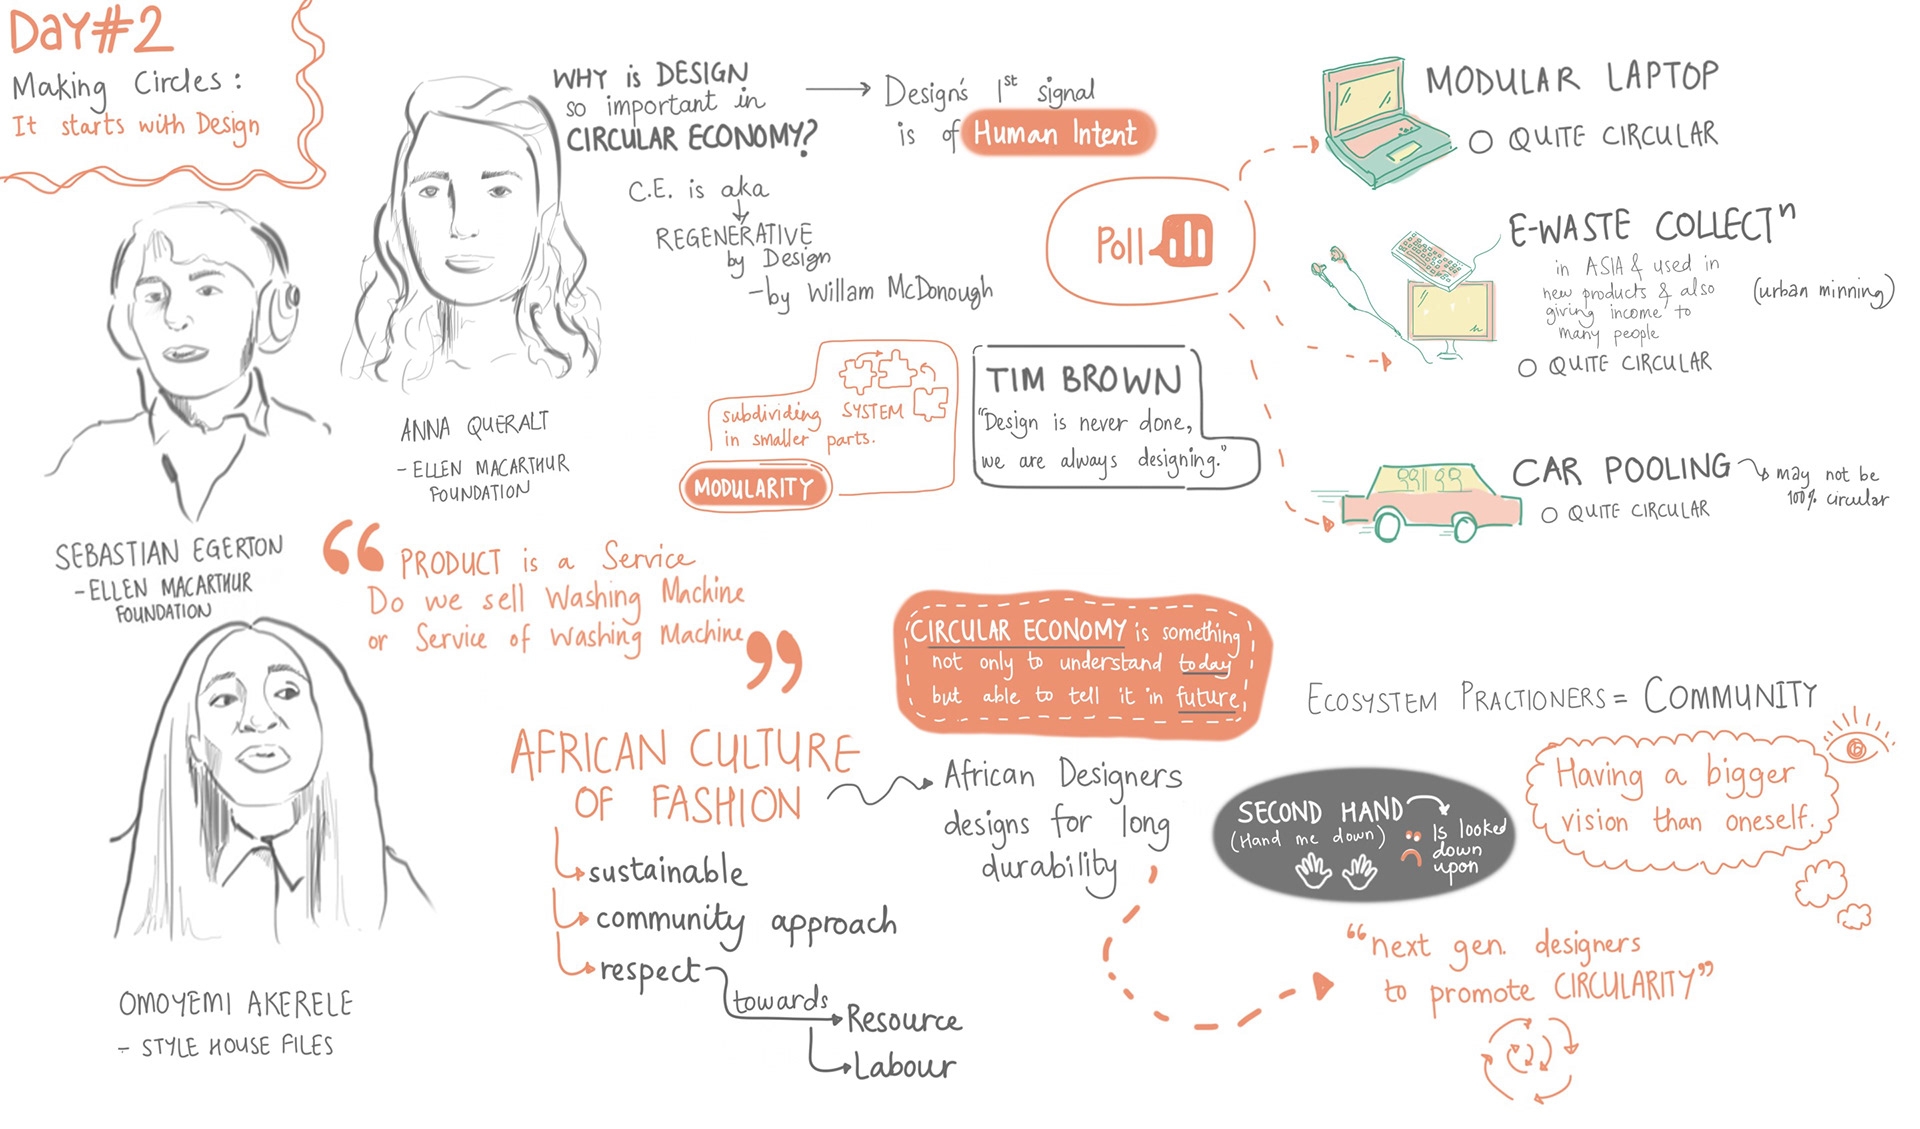 Day#2
Making Circles:
It starts with Design
WHY is DESIGN
so important in
CIRCULAR ECONOMY?
Design's 1st signal
is of Human Intent
C.E. is aka
REGENERATIVE
by Design
-by Willam McDonough
SEBASTIAN EGERTON
- ELLEN MACARTHUR
FOUNDATION
ANNA QUERALT
- ELLEN MACARTHUR
FOUNDATION
subdividing SYSTEM
in smaller parts.
MODULARITY
TIM BROWN
"Design is never done,
we are always designing."
Poll
MODULAR LAPTOP
QUITE CIRCULAR
E-WASTE COLLECTn
in ASIA & used in
new products & also
giving income to
many people
(urban minning)
QUITE CIRCULAR
CAR POOLING
may not be
100% circular
QUITE CIRCULAR
“PRODUCT is a Service
Do we sell Washing Machine
or Service of Washing Machine”
OMOYEMI AKERELE
- STYLE HOUSE FILES
CIRCULAR ECONOMY is something
not only to understand today
but able to tell it in future
AFRICAN CULTURE
OF FASHION
sustainable
community approach
respect
towards
Resource
Labour
African Designers
designs for long
durability
ECOSYSTEM PRACTIONERS = COMMUNITY
SECOND HAND
(Hand me down)
Is looked
down
upon
Having a bigger
vision than oneself.
“next gen. designers
to promote CIRCULARITY”